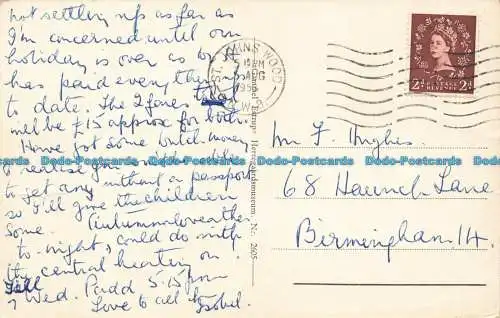 not settling up as far as
I'm concerned until our
holiday is over as by
has paid everything
to date. The 2 fares
will be £15 approx for both.
Have got some Dutch money
I realise you
to get any without a passport
so I'll give the children
some. Autumn weather
to-night, could do with
the central heating on
Till
7 Wed. Padd 5.15 pm
Love to all Isobel.
ST. JOHNS WOOD
PM
AUG
195
N.W.8
Europe Nr. 2605
POSTAGE REVENUE
2D 2D
Mr F. Hughes.
68 Haunch Lane
Birmingham 14
Dodo-Postcards Dodo-Postcards Dodo-Postcards Dodo-Postcards